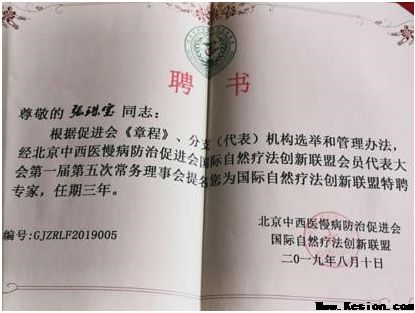 聘书
尊敬的 张珠宝 同志：
根据促进会《章程》、分支（代表）机构选举和管理办法，
经北京中西医慢病防治促进会国际自然疗法创新联盟会员代表大
会第一届第五次常务理事会提名您为国际自然疗法创新联盟特聘
专家，任期三年。
北京中西医慢病防治促进会
国际自然疗法创新联盟
编号：GJZRLF2019005
二〇一九年八月十日
Www.Kesion.com